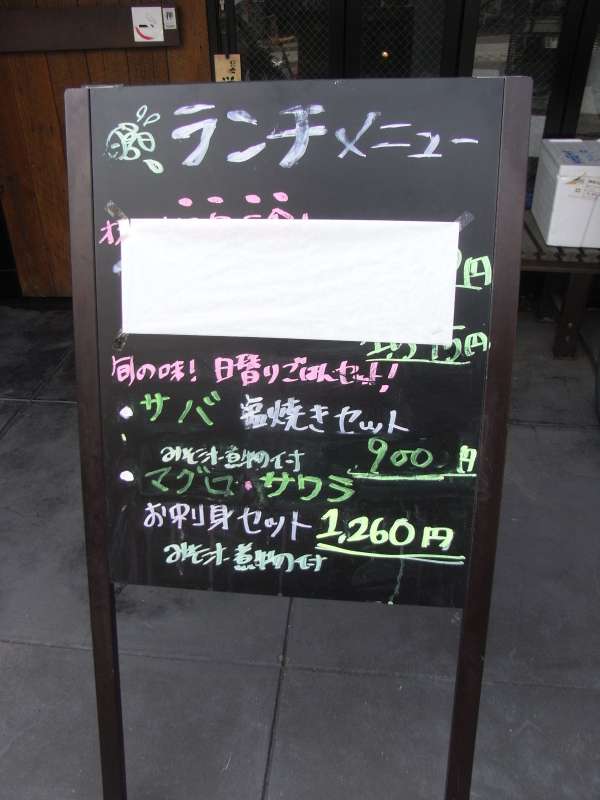 ランチメニュー
円
円
旬の味！日替りごはんセット！
・サバ 塩焼きセット
みそ汁煮物付 900円
・マグロ・サワラ
お刺身セット 1,260円
みそ汁煮物付